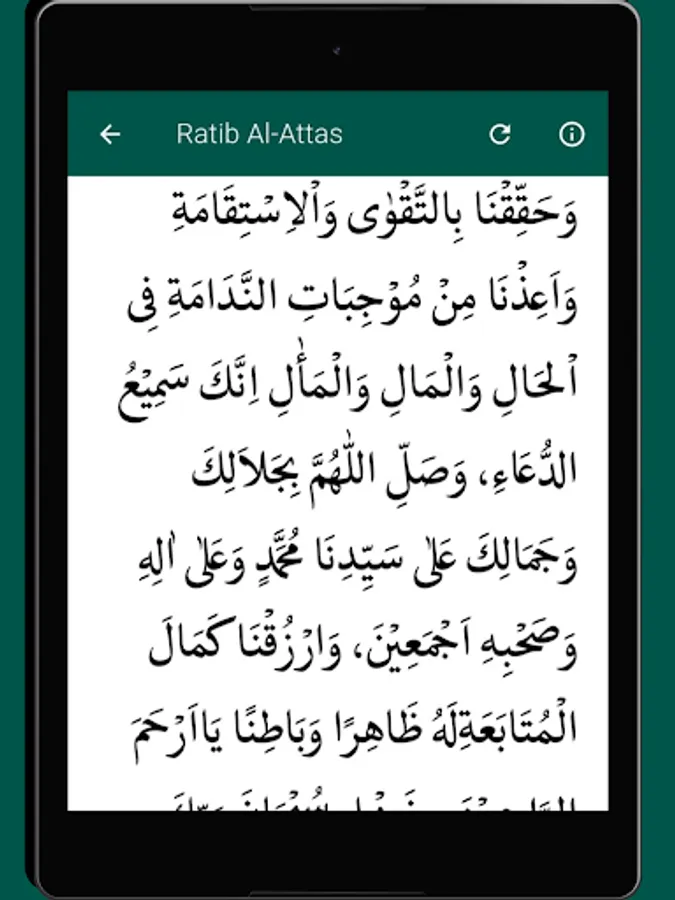 Ratib Al-Attas
وَحَقِّقْنَا بِالتَّقْوٰى وَاْلاِسْتِقَامَةِ
وَاَعِذْنَا مِنْ مُوْجِبَاتِ النَّدَامَةِ فِى
اْلحَالِ وَالْمَالِ وَالْمَأٰلِ اِنَّكَ سَمِيْعُ
الدُّعَاءِ، وَصَلِّ اللّٰهُمَّ بِجَلاَلِكَ
وَجَمَالِكَ عَلٰى سَيِّدِنَا مُحَمَّدٍ وَعَلٰى اٰلِهِ
وَصَحْبِهِ اَجْمَعِيْنَ، وَارْزُقْنَا كَمَالَ
الْمُتَابَعَةِلَهُ ظَاهِرًا وَبَاطِنًا يَااَرْحَمَ